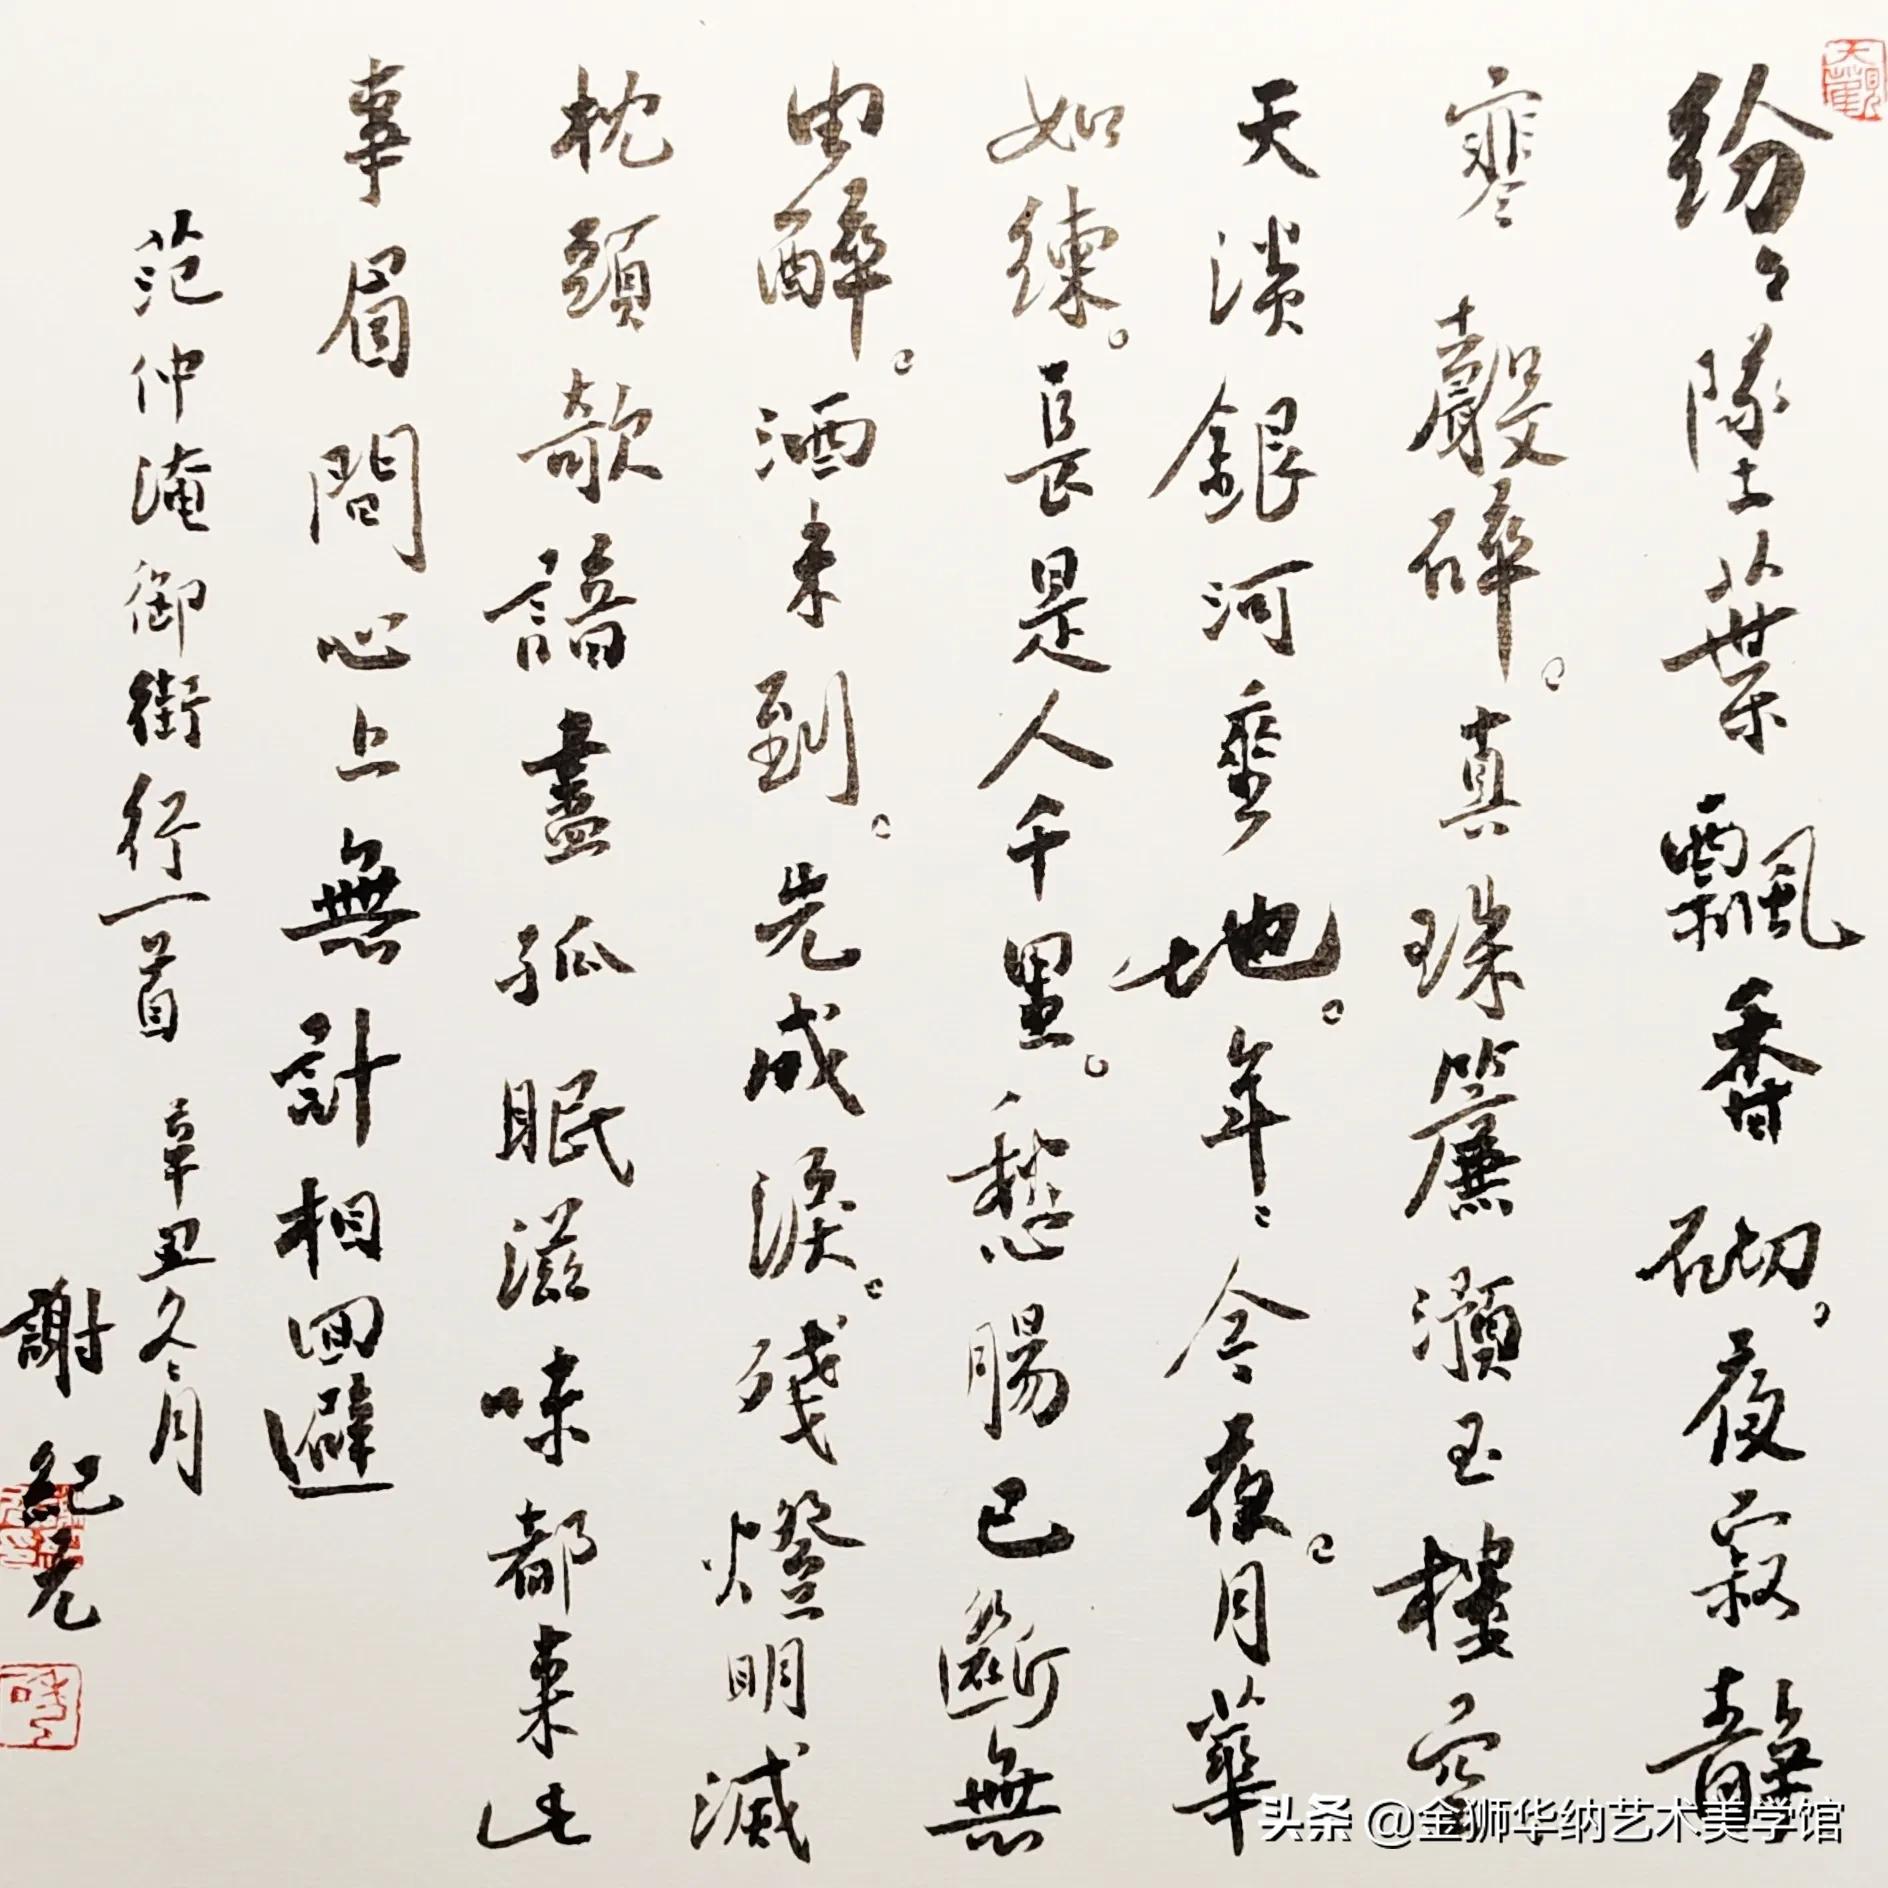 大觀
紛々墜葉飄香砌。夜寂靜
寒聲碎。真珠簾玉樓空
天淡銀河垂地。年々今夜。月華
如練。長是人千里。愁腸已斷無
由醉。酒未到。先成淚。殘燈明滅
枕頭欹諳盡孤眠滋味都來此
事眉間心上無計相回避
范仲淹御街行一首 辛丑冬月
謝紀元
头条 @金狮华纳艺术美学馆